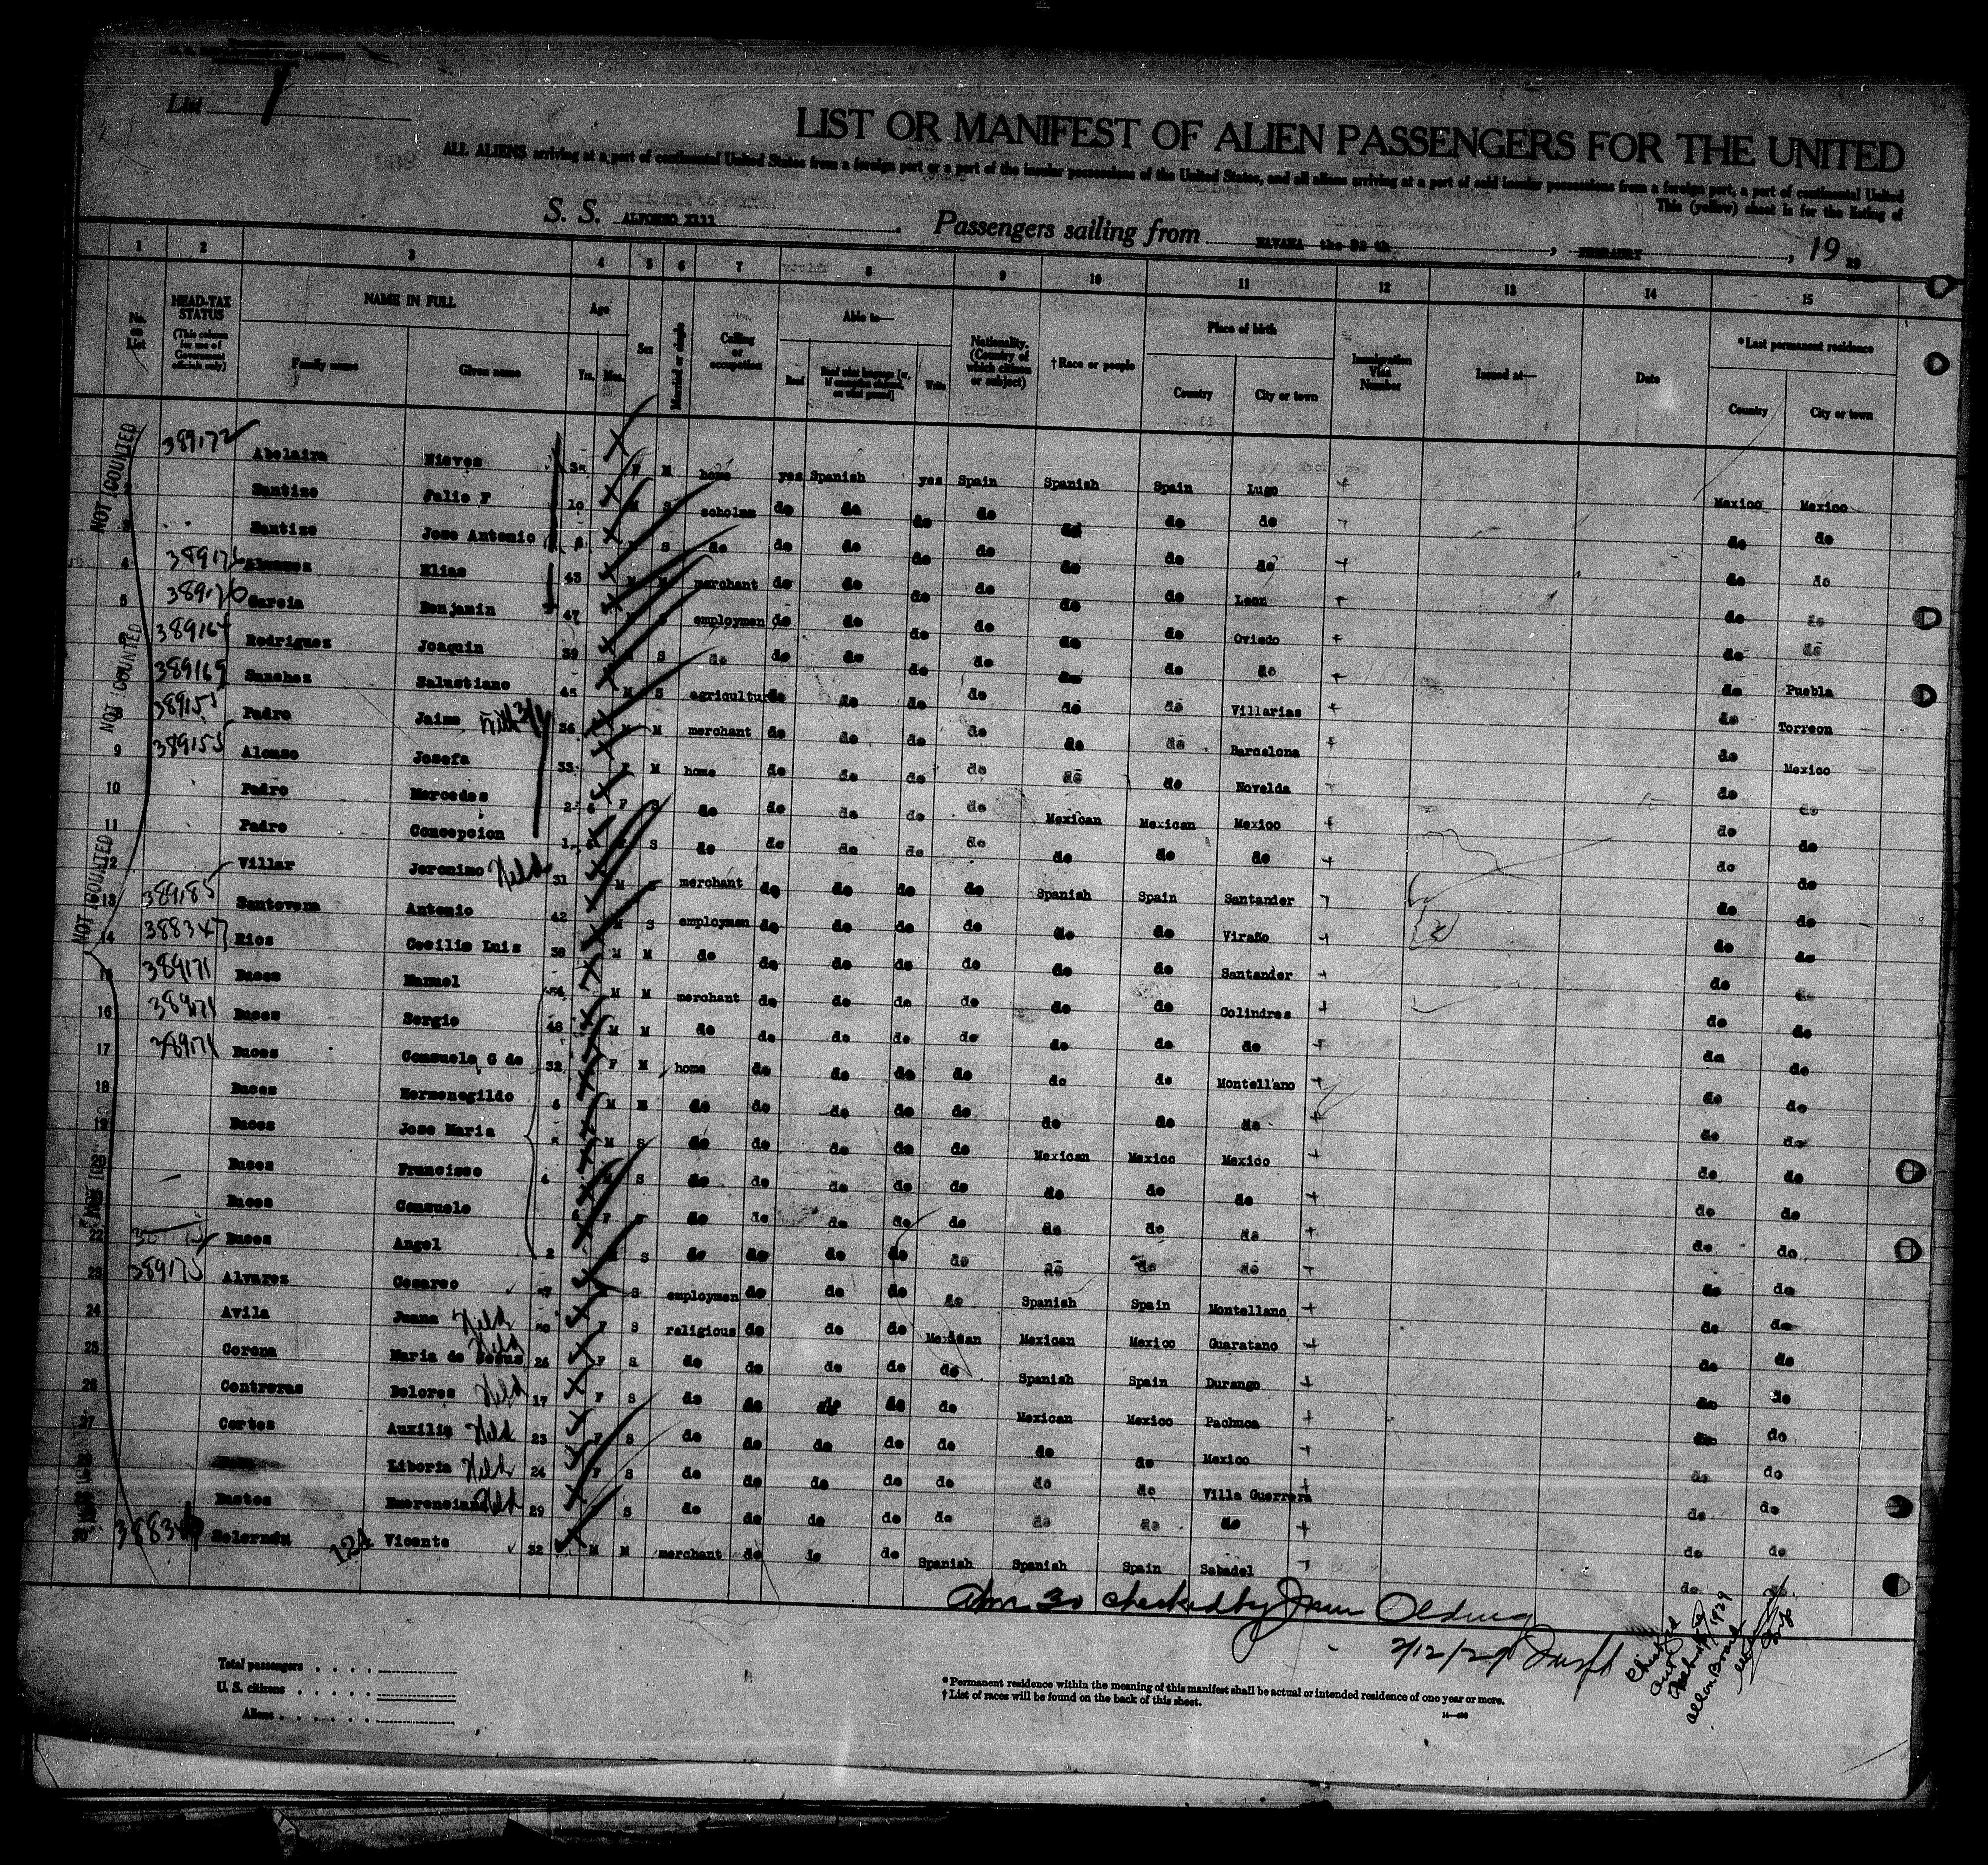 List 1
LIST OR MANIFEST OF ALIEN PASSENGERS FOR THE UNITED
ALL ALIENS arriving at a port of continental United States from a foreign port or a port of the insular possessions of the United States, and all aliens arriving at a port of said insular possessions from a foreign port, a port of continental United
This (yellow) sheet is for the listing of
S. S. ALFONSO XIII Passengers sailing from HAVANA the , FEBRUARY , 19 29
1 2 3 4 5 6 7 8 9 10 11 12 13 14 15
No. on List HEAD-TAX STATUS (This column for use of Government officials only) NAME IN FULL Family name Given name Age Yrs. Mos. Sex Married or single Calling or occupation Able to— Read Read what language [or, if exemption claimed, on what ground] Write Nationality. (Country of which citizen or subject) †Race or people Place of birth Country City or town Immigration Visa Number Issued at— Date *Last permanent residence Country City or town
NOT COUNTED
389172 Abelaira Nieves 35 F M home yes Spanish yes Spain Spanish Spain Lugo Mexico Mexico
Santizo Julio F 10 M S scholas do do do do do do do do do
Santizo Jose Antonio S do do do do do do do do do do
4 Elias 43 M M merchant do do do do do do Leon do do
5 389176 Garcia Benjamin 47 S employmen do do do do do do Oviedo do do
Rodriguez Joaquin 39 S do do do do do do do do do Puebla
389169 Sanchez Salustiano 45 M S agriculture do do do do do Villarias do Torreon
NOT COUNTED
389155 Padro Jaime 36 M M merchant do do do do do do Barcelona do Mexico
9 389155 Alonso Josefa 33 F M home do do do do do do Novelda do do
10 Padro Mercedes 2 F S do do do do do Mexican Mexican Mexico do do
11 Padro Concepcion 1 S do do do do do do do do do do
NOT COUNTED
12 Villar Jeronimo Held 31 M S merchant do do do do Spanish Spain Santander do do
13 389185 Santovena Antonio 42 M S employmen do do do do do do Viraño do do
14 388347 Rios Cecilio Luis 38 M M do do do do do do do Santander do do
15 389171 Buces Manuel M M merchant do do do do do do Colindres do do
16 389171 Buces Sergio 48 M M do do do do do do do do do do
17 389171 Buces Consuelo G de 32 F M home do do do do do do Montellano do do
18 Buces Hermenegildo 6 M do do do do do do do do do do
19 Buces Jose Maria 5 M S do do do do do Mexican Mexico Mexico do do
20 Buces Francisco 4 M S do do do do do do do do do do
Buces Consuelo F S do do do do do do do do do do
22 Buces Angel 2 S do do do do do do do do do do
23 389175 Alvarez Cesareo 47 S employmen do do do do Spanish Spain Montellano do do
24 Avila Juana Held 50 F S religious do do do Mexican Mexican Mexico Guaratano do do
25 Corona Maria de Jesus Held 26 F S do do do do do Spanish Spain Durango do do
26 Contreras Dolores Held 17 F S do do do do do Mexican Mexico Pachuca do do
27 Cortes Auxilio Held 23 F S do do do do do do do Mexico do do
Liboria Held 24 F S do do do do do do do Villa Guerrera do do
Bustos Held 29 S do do do do do do do do do do
30 124 Vicente 32 M M merchant do do Spanish Spanish Spain Sabadel do
30 checked by
2/12/29
Total passengers
U. S. citizens
Aliens
* Permanent residence within the meaning of this manifest shall be actual or intended residence of one year or more.
† List of races will be found on the back of this sheet.